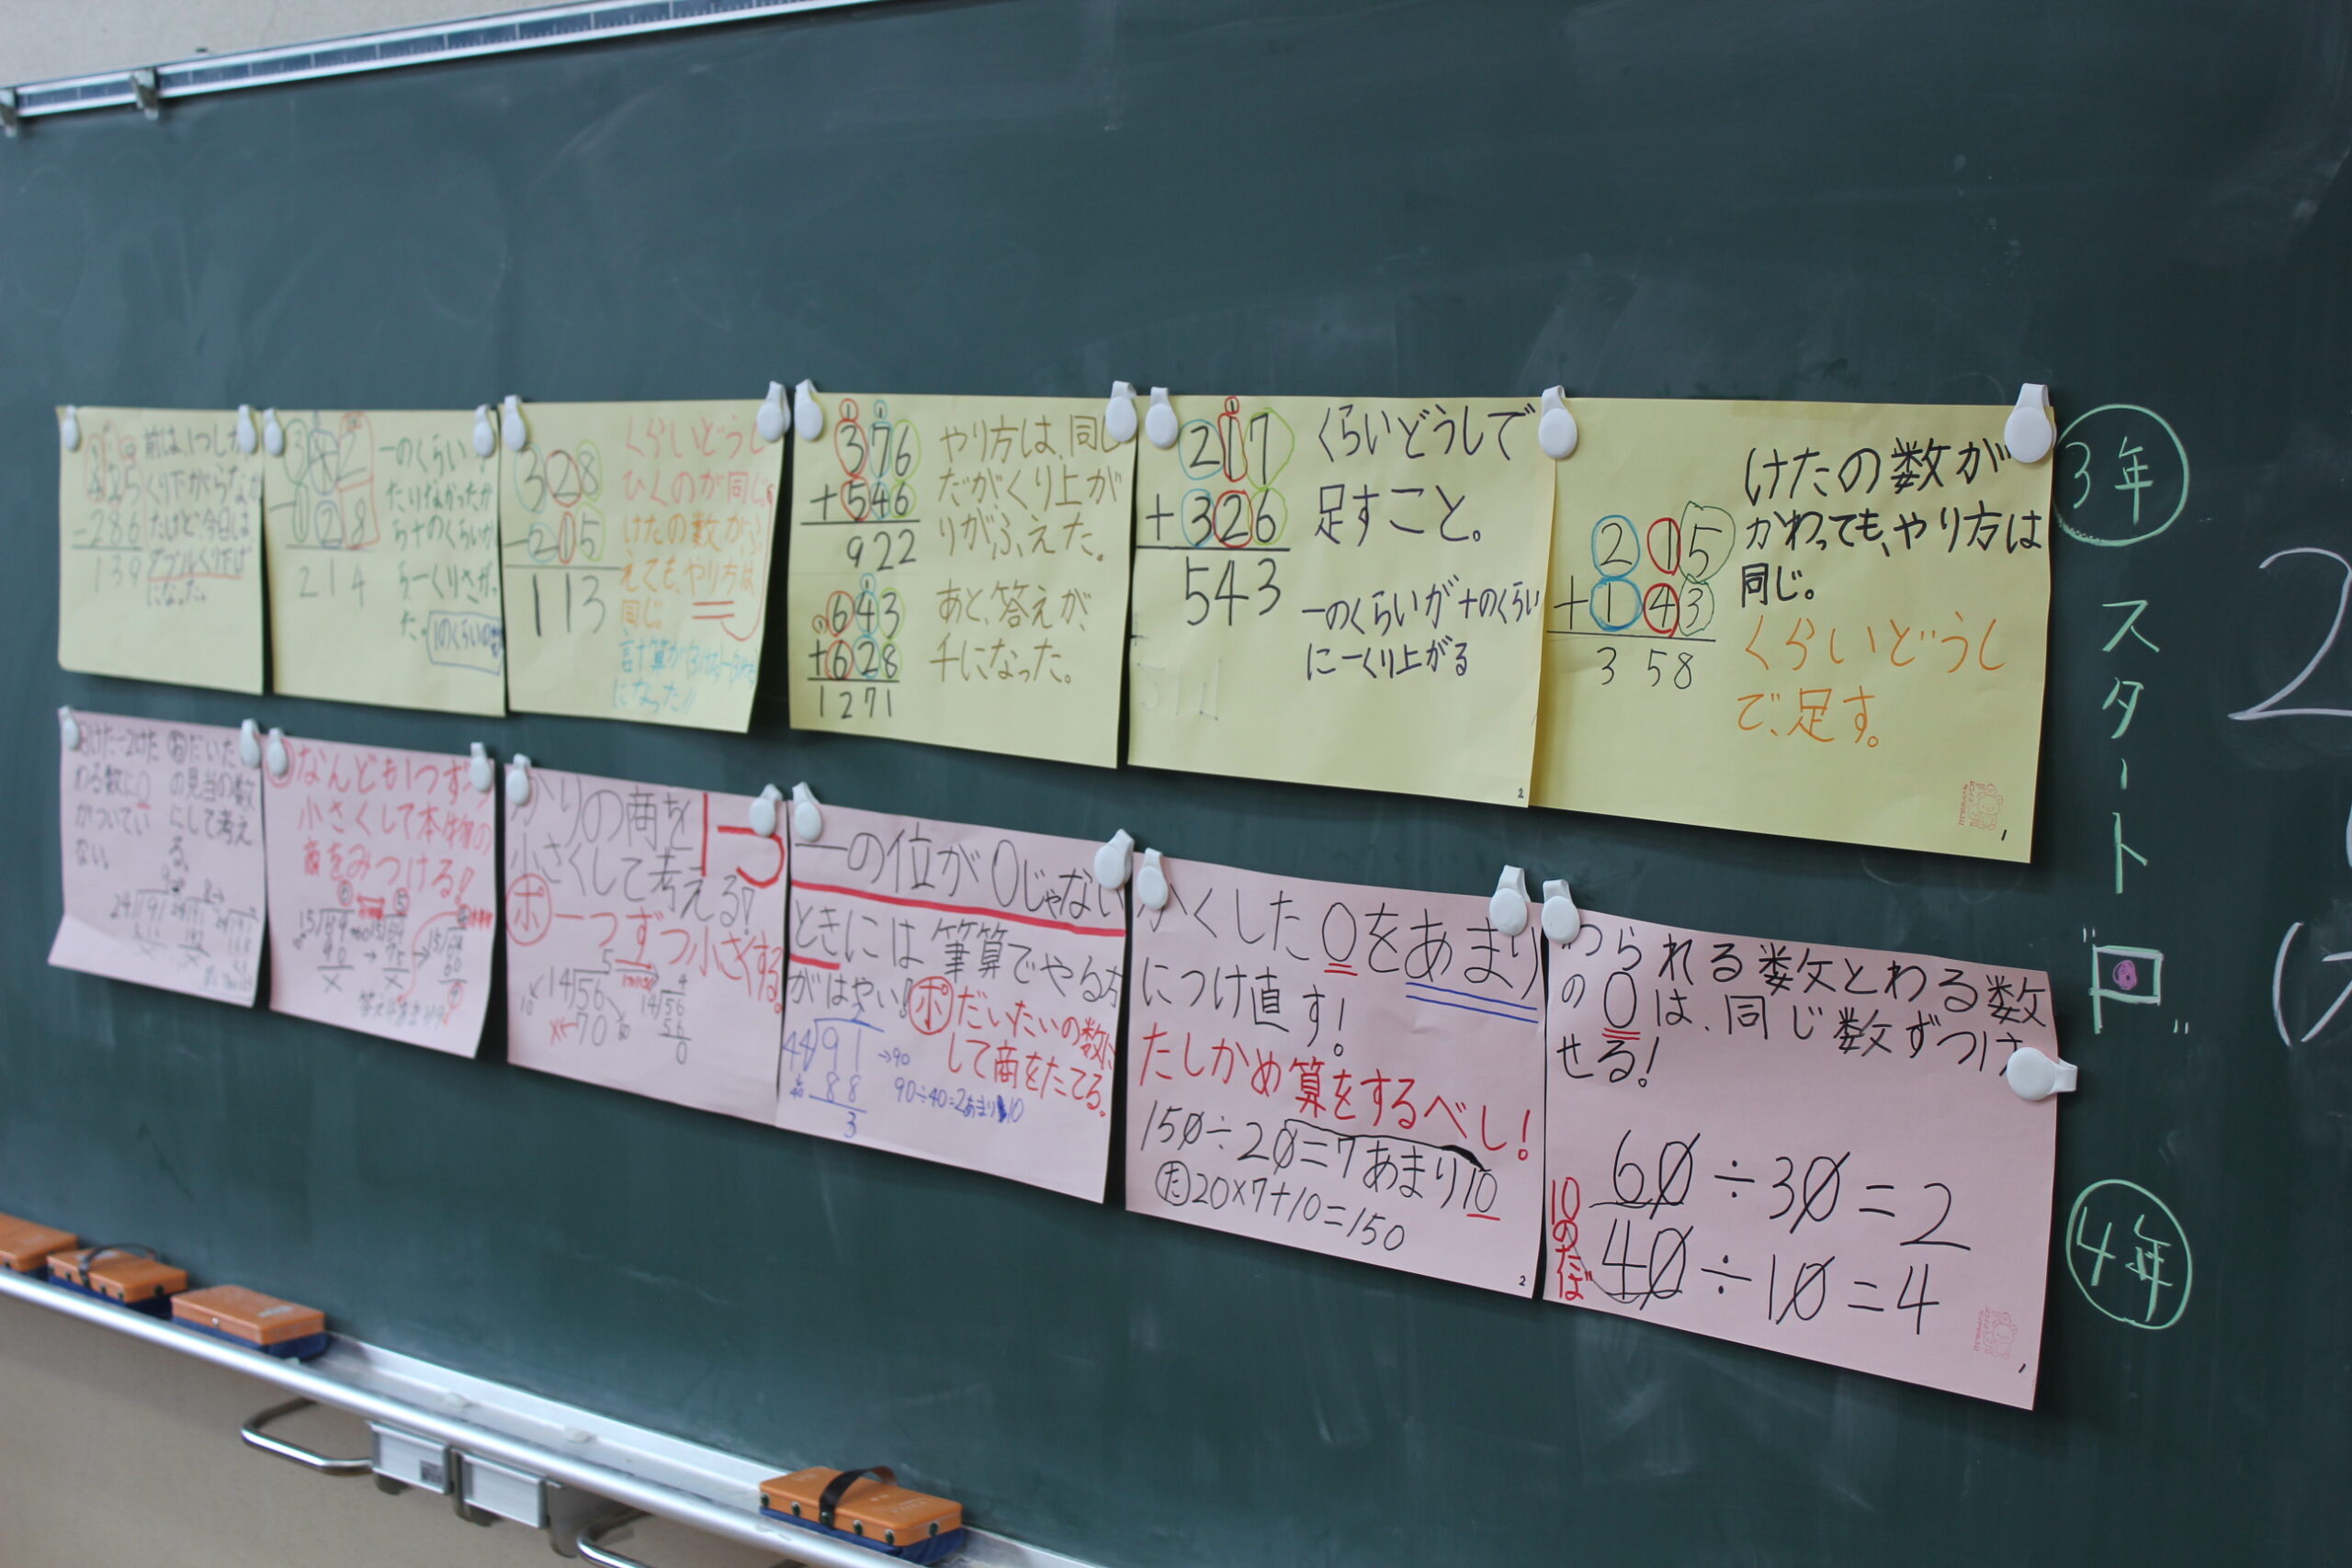 3年
スタート
4年
けたの数が
かわっても、やり方は
同じ。
くらいどうし
で、足す。
215
+143
358
1
くらいどうしで
足すこと。
一のくらいが十のくらい
に一くり上がる
217
+326
543
2
やり方は、同じ
だがくり上が
りがふえた。
あと、答えが、
千になった。
376
+546
922
643
+628
1271
くらいどうし
ひくのが同じ。
けたの数がふ
えても、やり方は
同じ。
になった!!
328
-205
113
一のくらい
たりなかったか
ら十のくらいか
ら一くりさがっ
た。
-128
214
前は、1つしか
くり下がらなか
たけど今日は
ダブルくり下げ
になった。
-286
139
われる数とわる数
の0は、同じ数ずつけ
せる!
10のたば
60÷30=2
40÷10=4
1
くした0をあまり
につけ直す!
たしかめ算をするべし!
150÷20=7あまり10
た 20×7+10=150
2
一の位が0じゃない
ときには筆算でやる方
がはやい!
ポ だいたいの数に
して商をたてる。
2
44)91
88
3
→90
90÷40=2あまり10
かりの商を
小さくして考える!
ポ 一つずつ小さくする。
5
14)56
70
4
14)56
56
0
なんども1つずつ
小さくして本物の
商をみつける!
わる数に0
がついてい
ない。
だいたい
の見当の数
らして考え
る。